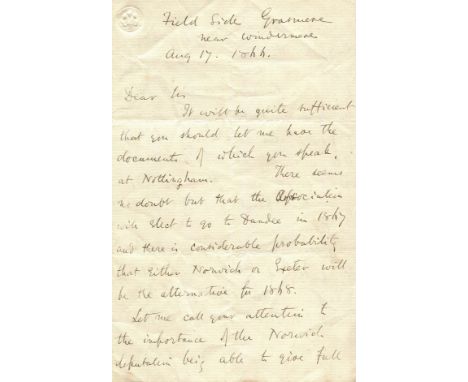 Field Side Grasmere
near Windermere
Aug 17. 1866.
Dear Sir
It will be quite sufficient
that you should let me have the
documents, of which you speak,
at Nottingham. There seems
no doubt but that the Association
will elect to go to Dundee in 1867
and there is considerable probability
that either Norwich or Exeter will
be the alternative for 1868.
Let me call your attention to
the importance of the Norwich
deputation being able to give full